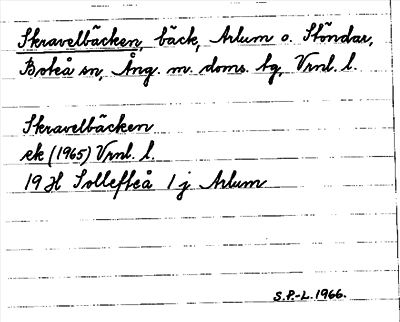 Skravelbäcken, bäck, Arlum o. Stöndar,
Boteå sn, Ång. m. doms. tg, Vrnl. l.
Skravelbäcken
ek (1965) Vrnl. l.
19 H Sollefteå 1 j Arlum
S.P.-L. 1966.